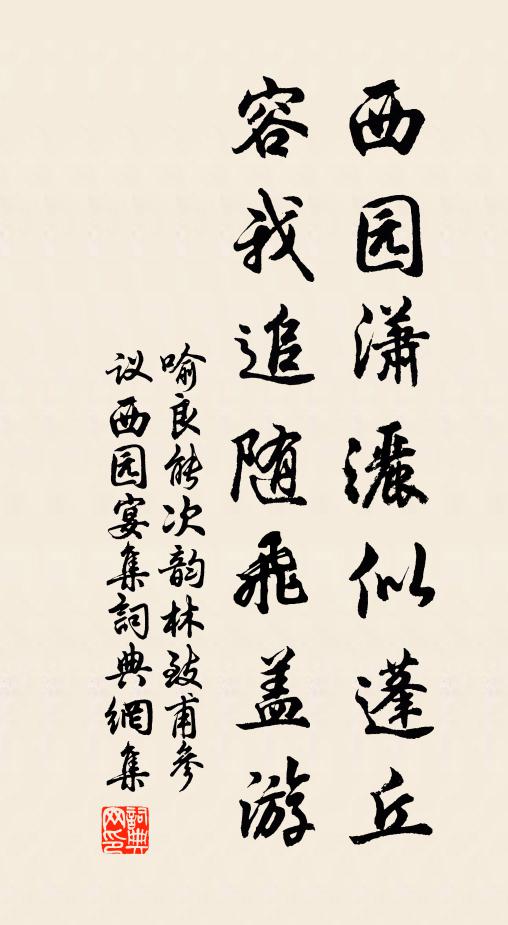 西园潇灑似蓬丘
容我追随飛盖游
喻良能次韵林致甫参
议西园宴集詞典網集
詞典網印